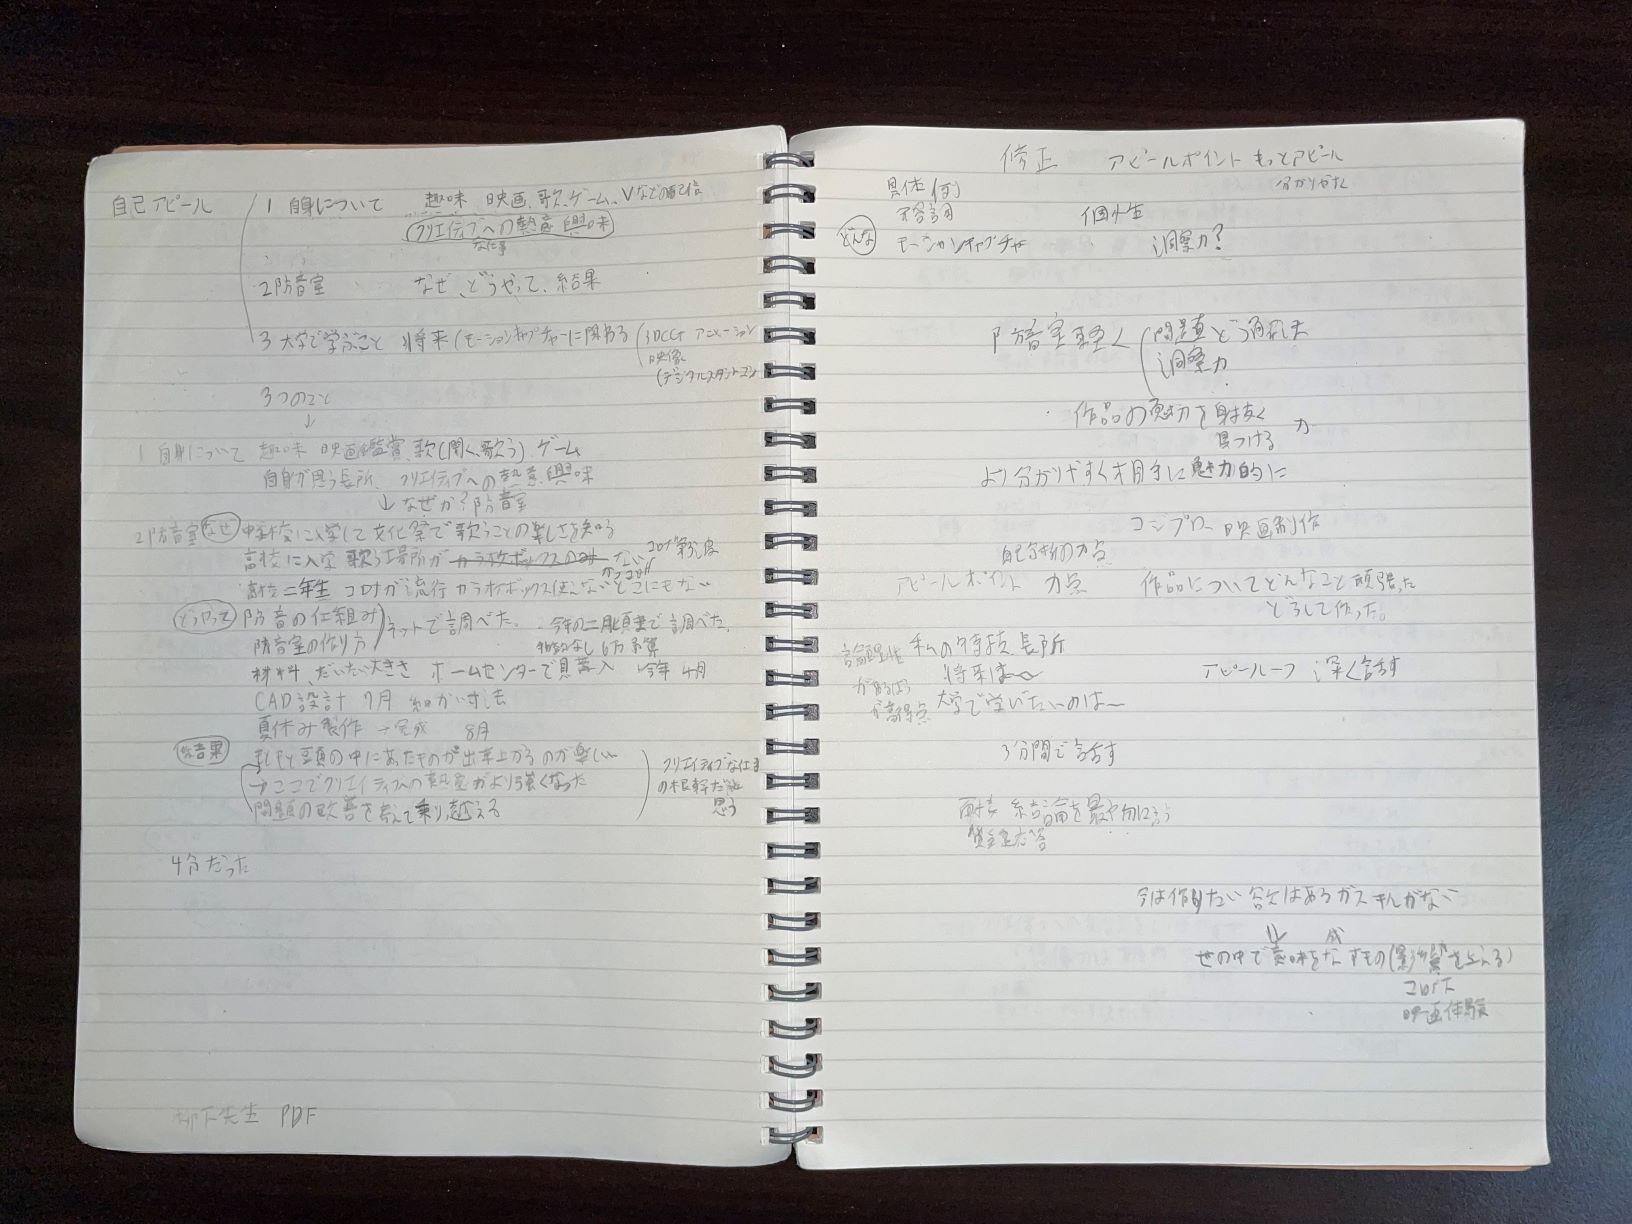 自己アピール
1 自身について 趣味 映画、歌、ゲーム、Vなどの配信
クリエイティブへの熱意 興味
な仕事
2 防音室 なぜ、どうやって、結果
3 大学で学ぶこと 将来(モーションキャプチャーに関わる(3DCG アニメーション
映像
(デジタルスタントマン
3つのこと
↓
1 自身について 趣味 映画鑑賞、歌(聞く、歌う)、ゲーム
自身が思う長所、クリエイティブへの熱意、興味
↓なぜか?防音室
2防音室 なぜ 中学校に入学して文化祭で歌うことの楽しさを知る
高校に入学 歌う場所がカラオケボックスのみ ない
高校二年生 コロナが流行 カラオケボックス使えないどこにもない
どうやって 防音の仕組み
防音室の作り方
ネットで調べた。
今年の二月頃まで調べた。
相談なし 6万 予算
材料、だいたい大きさ ホームセンターで見 購入 今年 4月
CAD設計 7月 細かい寸法
夏休み製作→完成 8月
結果 もともと頭の中にあったものが出来上がるのが楽しい
→ここでクリエイティブへの熱意がより強くなった
問題の改善を考えて乗り越える
クリエイティブな仕事
の根幹だと
思う
4分だった
柳下先生 PDF
修正 アピールポイント もっとアピール
分かりやすく
具体例
どんな
モーションキャプチャ
個性
洞察力?
防音室軽く
問題をどう通した
洞察力
作品の魅力を射抜く
見つける
力
より分かりやすく相手に魅力的に
コジプロ 映画制作
自己分析の力点
アピールポイント 力点
作品についてどんなこと頑張った
どうして作った。
論理性
があるほう
が高得点
私の特技 長所
将来は〜
大学で学びたいのは〜
アピール一つ 深く話す
3分間で話す
面接 結論を最初に言う
質疑応答
今は作りたい欲はあるがスキルがない
世の中で意味をなすもの(影響を与える)
成
映画体験